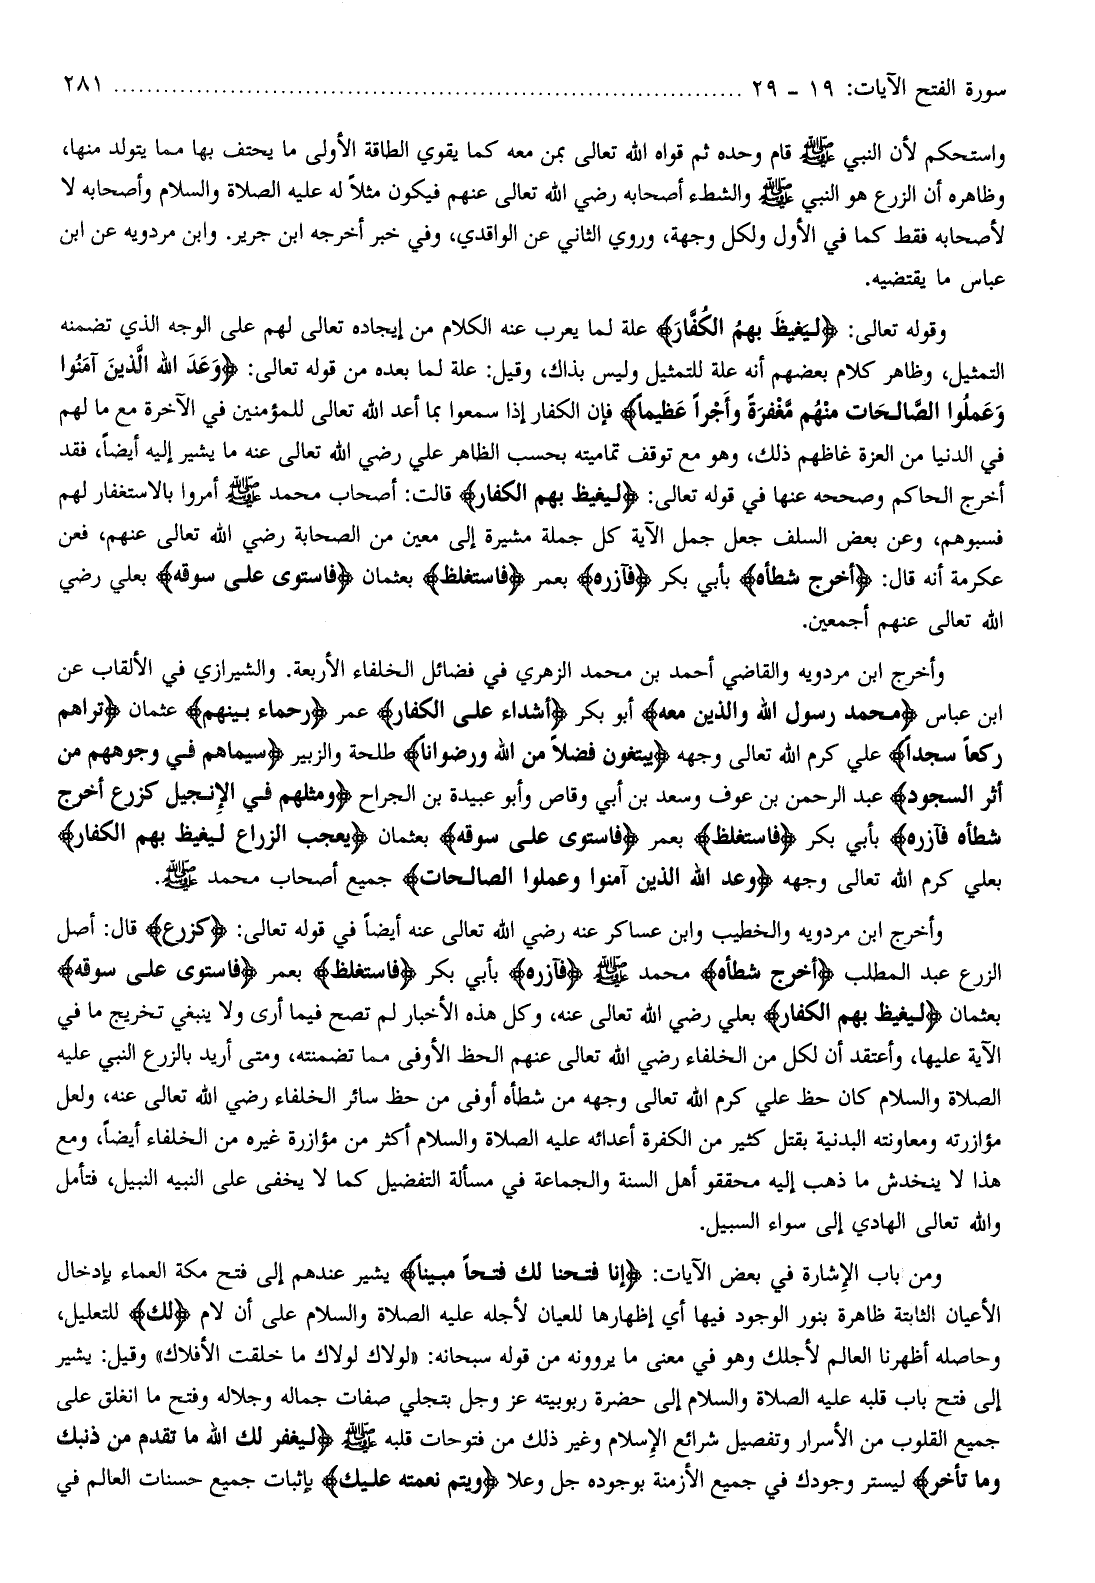 سورة الفتح الآيات: ١٩ - ٢٩ ........................................................................... ٢٨١
واستحكم لأن النبي ﷺ قام وحده ثم قواه الله تعالى بمن معه كما يقوي الطاقة الأولى ما يحتف بها مما يتولد منها،
وظاهره أن الزرع هو النبي ﷺ والشطء أصحابه رضي الله تعالى عنهم فيكون مثلاً له عليه الصلاة والسلام وأصحابه لا
لأصحابه فقط كما في الأول ولكل وجهة، وروي الثاني عن الواقدي، وفي خبر أخرجه ابن جرير. وابن مردويه عن ابن
عباس ما يقتضيه.
وقوله تعالى: ﴿لِيَغيظَ بهمُ الكُفَّارَ﴾ علة لما يعرب عنه الكلام من إيجاده تعالى لهم على الوجه الذي تضمنه
التمثيل، وظاهر كلام بعضهم أنه علة للتمثيل وليس بذاك، وقيل: علة لما بعده من قوله تعالى: ﴿وَعَدَ الله الَّذينَ آمَنُوا
وَعَملُوا الصَّالحَات منْهُم مَّغْفرَةً وأَجْراً عَظيماً﴾ فإن الكفار إذا سمعوا بما أعد الله تعالى للمؤمنين في الآخرة مع ما لهم
في الدنيا من العزة غاظهم ذلك، وهو مع توقف تماميته بحسب الظاهر علي رضي الله تعالى عنه ما يشير إليه أيضاً، فقد
أخرج الحاكم وصححه عنها في قوله تعالى: ﴿ليغيظ بهم الكفار﴾ قالت: أصحاب محمد ﷺ أمروا بالاستغفار لهم
فسبوهم، وعن بعض السلف جعل جمل الآية كل جملة مشيرة إلى معين من الصحابة رضي الله تعالى عنهم، فعن
عكرمة أنه قال: ﴿أخرج شطأه﴾ بأبي بكر ﴿فآزره﴾ بعمر ﴿فاستغلظ﴾ بعثمان ﴿فاستوى على سوقه﴾ بعلي رضي
الله تعالى عنهم أجمعين.
وأخرج ابن مردويه والقاضي أحمد بن محمد الزهري في فضائل الخلفاء الأربعة. والشيرازي في الألقاب عن
ابن عباس ﴿محمد رسول الله والذين معه﴾ أبو بكر ﴿أشداء على الكفار﴾ عمر ﴿رحماء بينهم﴾ عثمان ﴿تراهم
ركعاً سجداً﴾ علي كرم الله تعالى وجهه ﴿يبتغون فضلاً من الله ورضواناً﴾ طلحة والزبير ﴿سيماهم في وجوههم من
أثر السجود﴾ عبد الرحمن بن عوف وسعد بن أبي وقاص وأبو عبيدة بن الجراح ﴿ومثلهم في الإنجيل كزرع أخرج
شطأه فآزره﴾ بأبي بكر ﴿فاستغلظ﴾ بعمر ﴿فاستوى على سوقه﴾ بعثمان ﴿يعجب الزراع ليغيظ بهم الكفار﴾
بعلي كرم الله تعالى وجهه ﴿وعد الله الذين آمنوا وعملوا الصالحات﴾ جميع أصحاب محمد ﷺ.
وأخرج ابن مردويه والخطيب وابن عساكر عنه رضي الله تعالى عنه أيضاً في قوله تعالى: ﴿كزرع﴾ قال: أصل
الزرع عبد المطلب ﴿أخرج شطأه﴾ محمد ﷺ ﴿فآزره﴾ بأبي بكر ﴿فاستغلظ﴾ بعمر ﴿فاستوى على سوقه﴾
بعثمان ﴿ليغيظ بهم الكفار﴾ بعلي رضي الله تعالى عنه، وكل هذه الأخبار لم تصح فيما أرى ولا ينبغي تخريج ما في
الآية عليها، وأعتقد أن لكل من الخلفاء رضي الله تعالى عنهم الحظ الأوفى مما تضمنته، ومتى أريد بالزرع النبي عليه
الصلاة والسلام كان حظ علي كرم الله تعالى وجهه من شطأه أوفى من حظ سائر الخلفاء رضي الله تعالى عنه، ولعل
مؤازرته ومعاونته البدنية بقتل كثير من الكفرة أعدائه عليه الصلاة والسلام أكثر من مؤازرة غيره من الخلفاء أيضاً، ومع
هذا لا ينخدش ما ذهب إليه محققو أهل السنة والجماعة في مسألة التفضيل كما لا يخفى على النبيه النبيل، فتأمل
والله تعالى الهادي إلى سواء السبيل.
ومن باب الإشارة في بعض الآيات: ﴿إنا فتحنا لك فتحاً مبيناً﴾ يشير عندهم إلى فتح مكة العماء بإدخال
الأعيان الثابتة ظاهرة بنور الوجود فيها أي إظهارها للعيان لأجله عليه الصلاة والسلام على أن لام ﴿لك﴾ للتعليل،
وحاصله أظهرنا العالم لأجلك وهو في معنى ما يروونه من قوله سبحانه: «لولاك لولاك ما خلقت الأفلاك» وقيل: يشير
إلى فتح باب قلبه عليه الصلاة والسلام إلى حضرة ربوبيته عز وجل بتجلي صفات جماله وجلاله وفتح ما انغلق على
جميع القلوب من الأسرار وتفصيل شرائع الإسلام وغير ذلك من فتوحات قلبه ﷺ ﴿ليغفر لك الله ما تقدم من ذنبك
وما تأخر﴾ ليستر وجودك في جميع الأزمنة بوجوده جل وعلا ﴿ويتم نعمته عليك﴾ بإثبات جميع حسنات العالم في